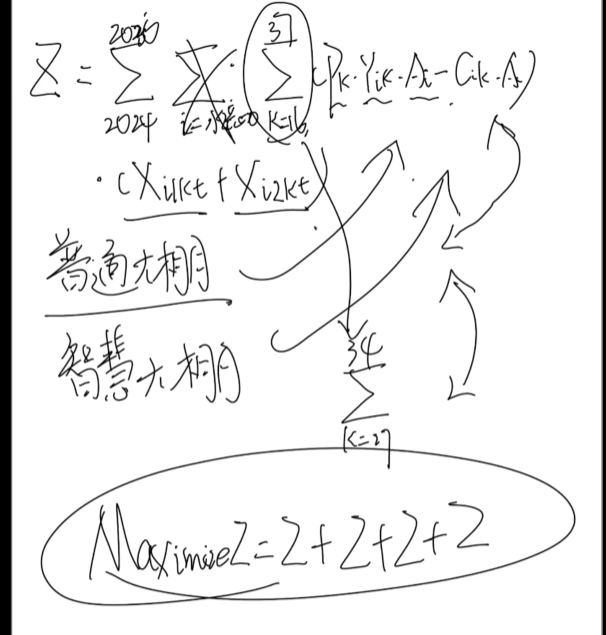 Z = ∑ 2030 2024 ∑ ∑ 37 k=16 (Pk·Yik·Ai − Cik·Ai)
·(Xi1kt + Xi2kt)
普通大棚
智慧大棚
∑ 34 k=27
Maximize Z = Z + Z + Z + Z